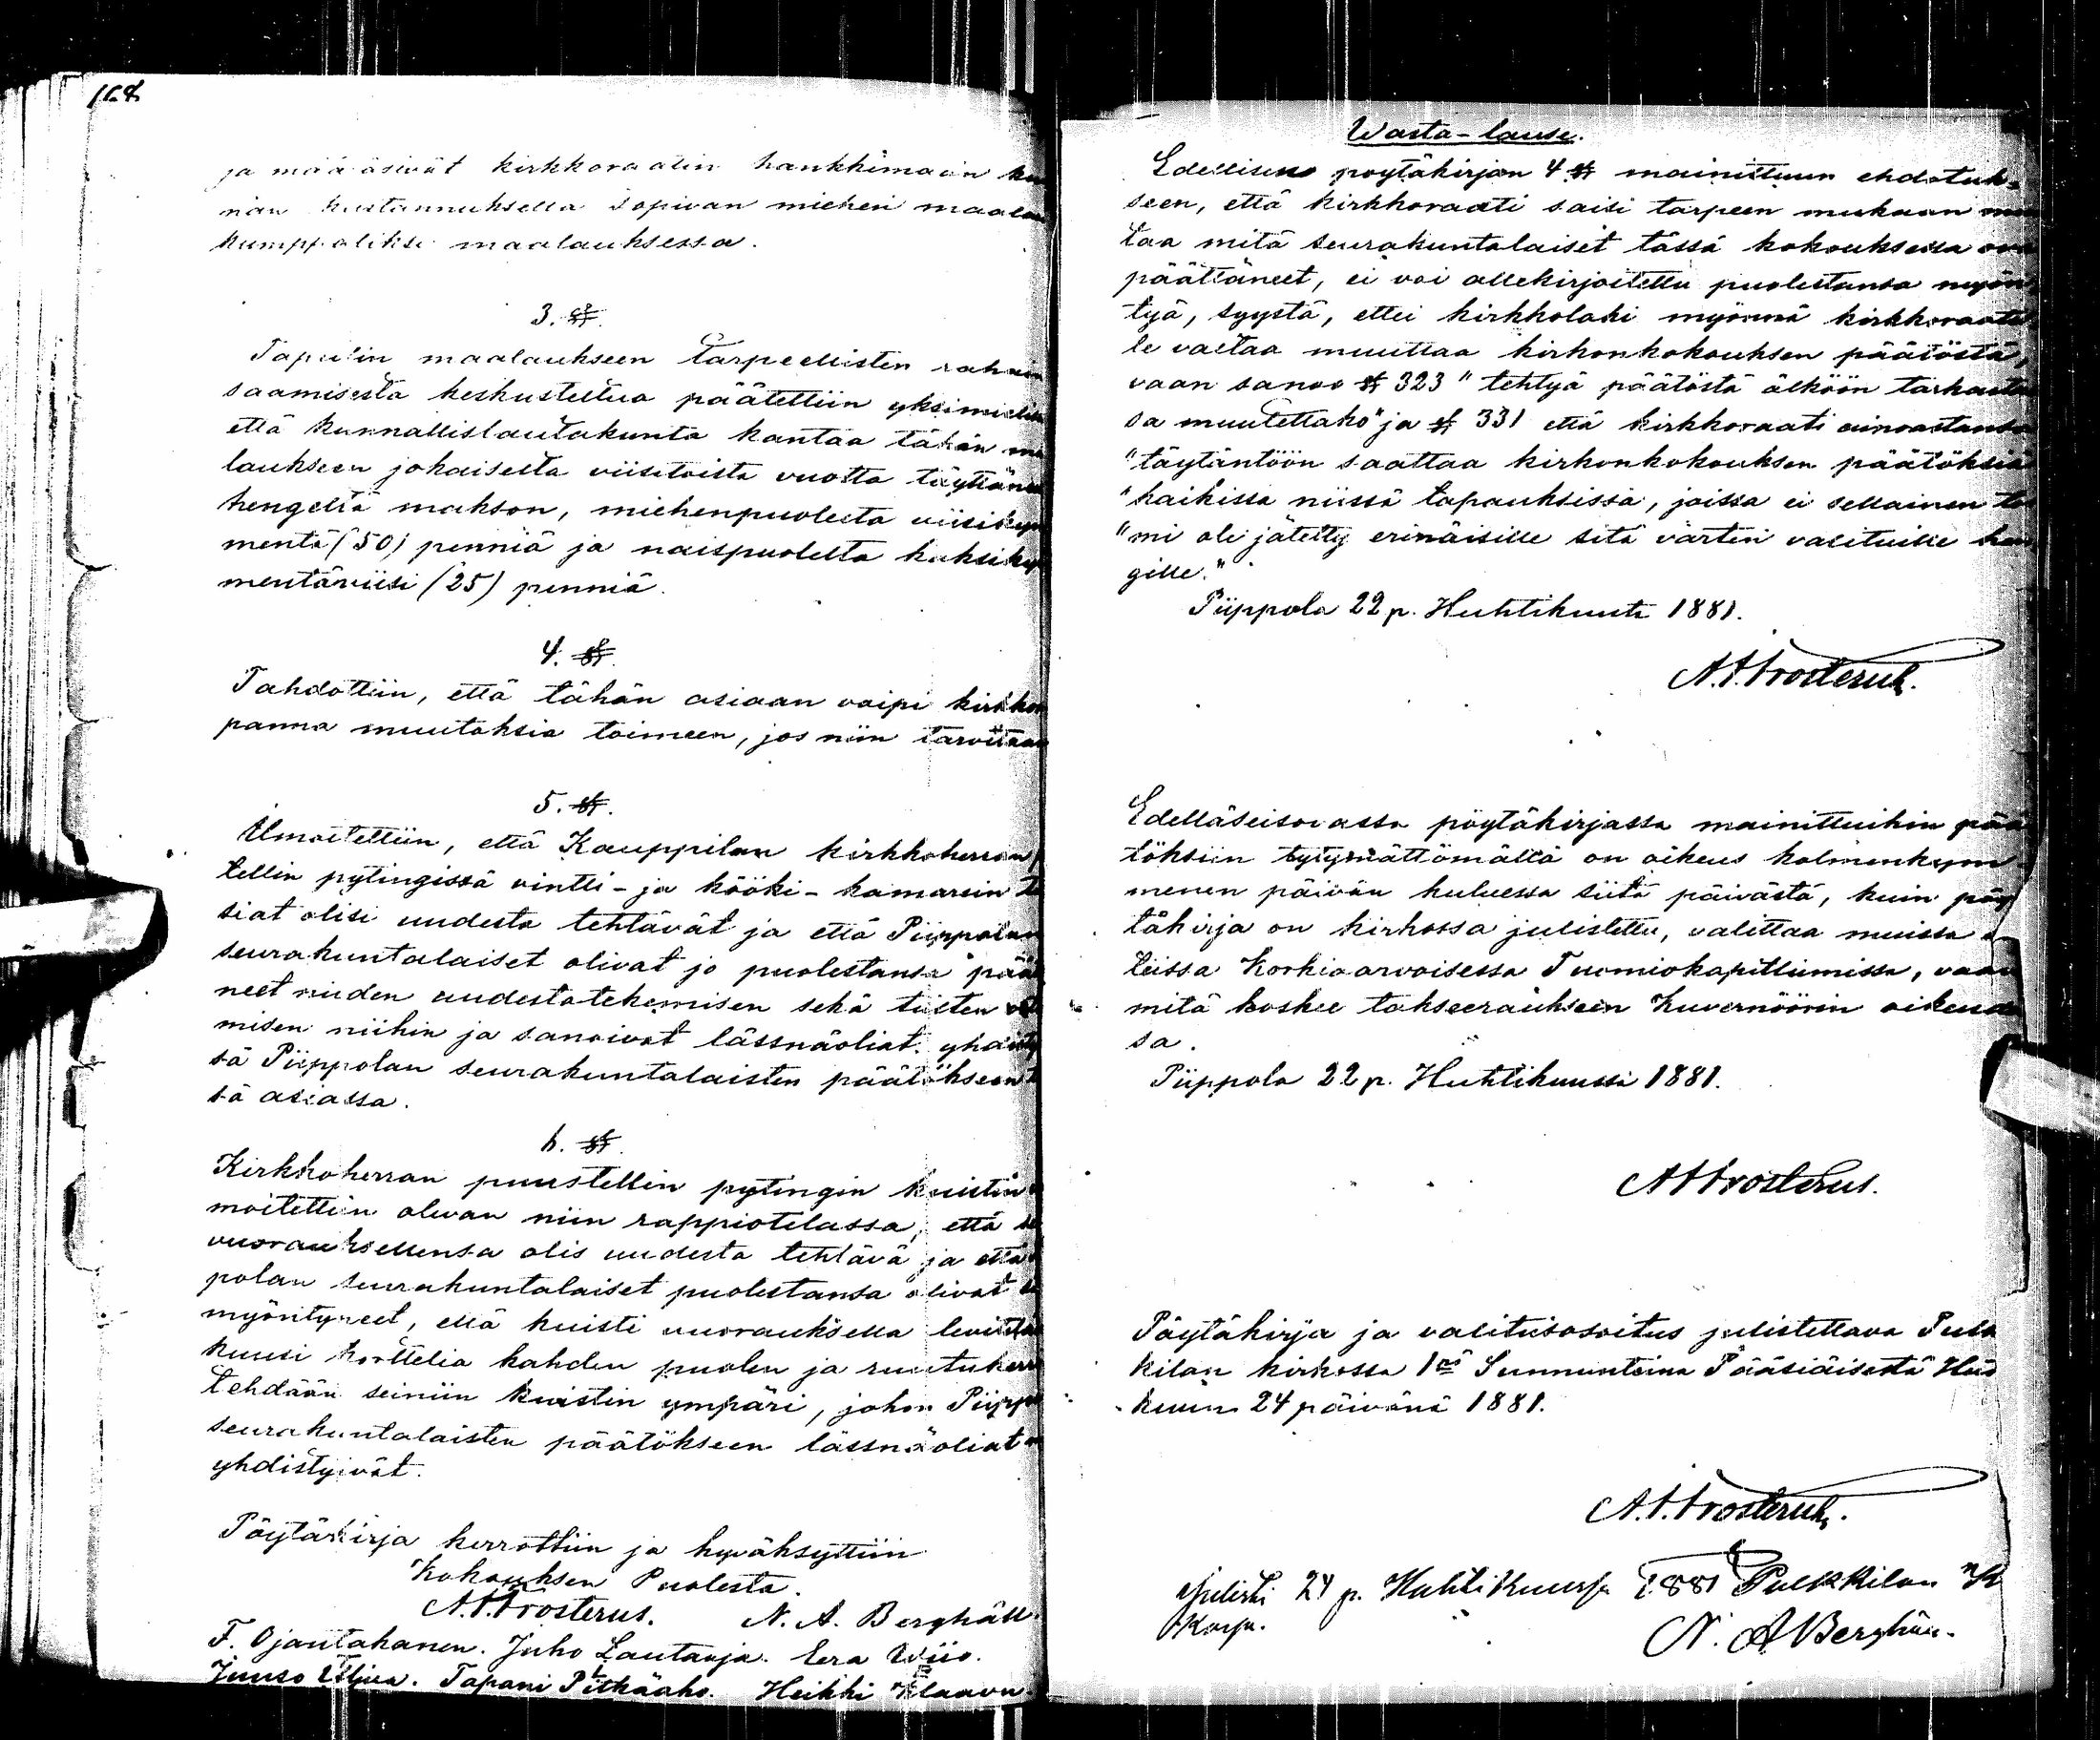 168
ja määräsivät kirkkoraadin hankkimaan
nan kustannuksella sopivan miehen
kumppaliksi maalauksessa.
3. §.
Tapulin maalaukseen tarpeellisten
saamisesta keskusteltua päätettiin
että kunnallislautakunta kantaa tähän
laukseen jokaisesta viisitoista vuotta
hengeltä makson, miehenpuolesta
mentä (50) penniä ja naispuolesta
mentäviisi (25) penniä.
4. §.
Tahdottiin, että tähän asiaan vaipi
panna muutoksia toimeen, jos niin
5. §.
Ilmoitettiin, että Kauppilan kirkkoherran
tellin pytingissä vintti- ja kööki- kamarein
siat olisi uudesta tehtävät ja että Piippolan
seurakuntalaiset olivat jo puolestansa
neet niiden uudestatekemisen sekä
misen niihin ja sanoivat lässnäoliat
sä Piippolan seurakuntalaisten päätökseen
sä asiassa.
6. §.
Kirkkoherran puustellin pytingin kuistin
moitettiin olevan niin rappiotilassa, että
vuorauksellensa olis uudesta tehtävä ja että
polan seurakuntalaiset puolestansa olivat
myöntyneet, että kuisti vuorauksella
kuusi korttelia kahden puolen ja
tehdään seiniin kuistin ympäri, johon
seurakuntalaisten päätökseen lässnäoliat
yhdistyivät.
Pöytäkirja kerrottiin ja hyväksyttiin
Kokouksen Puolesta.
A. F. Frosterus. N. A. Berghäll.
F. Ojantakanen. Juho Lautaoja. Wiio.
Juuso Tapani Pitkäaho. Heikki
Wasta-lause.
Edellisen pöytäkirjan 4 § mainittuun ehdotuk-
seen, että kirkkoraati saisi tarpeen mukaan
taa mitä seurakuntalaiset tässä kokouksessa
päättäneet, ei voi allekirjoitettu puolestansa
tyä, syystä, ettei kirkkolaki myönnä
le valtaa muuttaa kirkonkokouksen päätöstä,
vaan sanoo § 323 "tehtyä päätöstä älköön
sa muutettako" ja § 331 että kirkkoraati ainoastansa
"täytäntöön saattaa kirkonkokouksen päätöksiä
"kaikissa niissä tapauksissa, joissa ei sellainen
"mi ole jätetty erinäisille sitä varten valituille
gille."
Piippola 22 p. Huhtikuuta 1881.
A. F. Frosterus.
Edelläseisovassa pöytäkirjassa mainittuihin
töksiin tytymättömällä on oikeus kolmenkym-
menen päivän kuluessa siitä päivästä, kuin
täkirja on kirkossa julistettu, valittaa muissa
teissa Korkiaarvoisessa Tuomiokapitliumissa, vaan
mitä koskee takseeraukseen Kuvernöörin
sa.
Piippola 22 p. Huhtikuussa 1881.
A F Frosterus.
Pöytäkirja ja valitusosoitus julistettava
kilan kirkossa 1nä Sunnuntaina Pääsiäisestä
kuun 24 päivänä 1881.
A. F. Frosterus.
Julisti 24 p. Huhtikuussa 1881 Pulkkilan
N. A Berghäll.